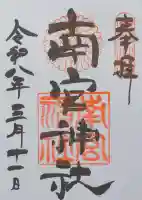 奉拝
南宮神社
令和八年三月十一日